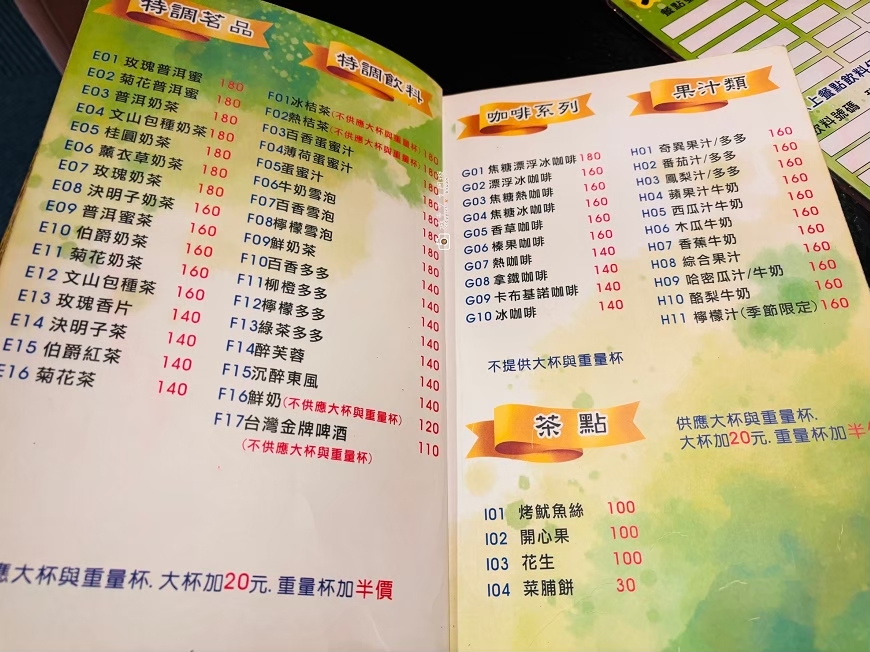 特調茗品
E01 玫瑰普洱蜜 180
E02 菊花普洱蜜 180
E03 普洱奶茶 180
E04 文山包種奶茶 180
E05 桂圓奶茶 180
E06 薰衣草奶茶 180
E07 玫瑰奶茶 180
E08 決明子奶茶 160
E09 普洱蜜茶 160
E10 伯爵奶茶 160
E11 菊花奶茶 160
E12 文山包種茶 160
E13 玫瑰香片 140
E14 決明子茶 140
E15 伯爵紅茶 140
E16 菊花茶 140
特調飲料
F01冰桔茶(不供應大杯與重量杯) 180
F02熱桔茶(不供應大杯與重量杯) 180
F03百香蛋蜜汁 180
F04薄荷蛋蜜汁 180
F05蛋蜜汁 180
F06牛奶雪泡 180
F07百香雪泡 180
F08檸檬雪泡 180
F09鮮奶茶 140
F10百香多多 140
F11柳橙多多 140
F12檸檬多多 140
F13綠茶多多 140
F14醉芙蓉 140
F15沉醉東風 140
F16鮮奶(不供應大杯與重量杯) 120
F17台灣金牌啤酒 110
(不供應大杯與重量杯)
應大杯與重量杯. 大杯加20元. 重量杯加半價
咖啡系列
G01 焦糖漂浮冰咖啡 180
G02 漂浮冰咖啡 160
G03 焦糖熱咖啡 160
G04 焦糖冰咖啡 160
G05 香草咖啡 160
G06 榛果咖啡 160
G07 熱咖啡 140
G08 拿鐵咖啡 140
G09 卡布基諾咖啡 140
G10 冰咖啡 140
不提供大杯與重量杯
果汁類
H01 奇異果汁/多多 160
H02 番茄汁/多多 160
H03 鳳梨汁/多多 160
H04 蘋果汁牛奶 160
H05 西瓜汁牛奶 160
H06 木瓜牛奶 160
H07 香蕉牛奶 160
H08 綜合果汁 160
H09 哈密瓜汁/牛奶 160
H10 酪梨牛奶 160
H11 檸檬汁(季節限定) 160
供應大杯與重量杯.
大杯加20元. 重量杯加半價
茶點
I01 烤魷魚絲 100
I02 開心果 100
I03 花生 100
I04 菜脯餅 30
上餐點飲料
飲料號碼